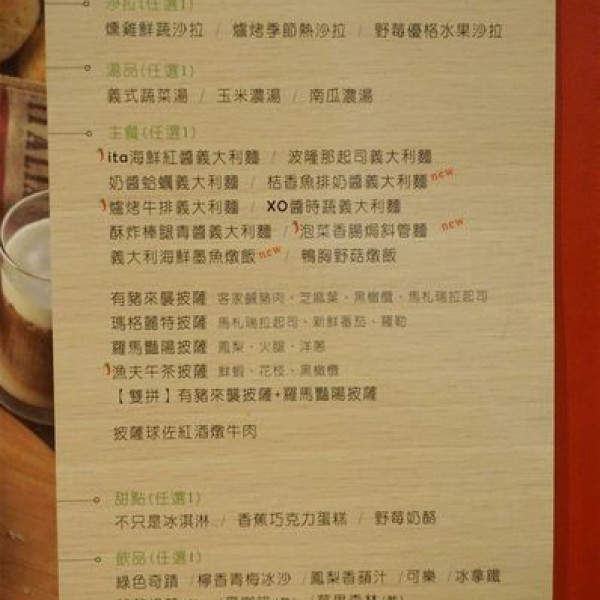 沙拉(任選1)
燻雞鮮蔬沙拉 / 爐烤季節熱沙拉 / 野莓優格水果沙拉
湯品(任選1)
義式蔬菜湯 / 玉米濃湯 / 南瓜濃湯
主餐(任選1)
ita海鮮紅醬義大利麵 / 波隆那起司義大利麵
奶醬蛤蠣義大利麵 / 桔香魚排奶醬義大利麵 new
爐烤牛排義大利麵 / XO醬時蔬義大利麵
酥炸棒腿青醬義大利麵 / 泡菜香腸焗斜管麵 new
義大利海鮮墨魚燉飯 new / 鴨胸野菇燉飯
有豬來襲披薩 客家鹹豬肉、芝麻葉、黑橄欖、馬札瑞拉起司
瑪格麗特披薩 馬札瑞拉起司、新鮮番茄、羅勒
羅馬豔陽披薩 鳳梨、火腿、洋蔥
漁夫午茶披薩 鮮蝦、花枝、黑橄欖
【雙拼】有豬來襲披薩+羅馬豔陽披薩
披薩球佐紅酒燉牛肉
甜點(任選1)
不只是冰淇淋 / 香蕉巧克力蛋糕 / 野莓奶酪
飲品(任選1)
綠色奇蹟 / 檸香青梅冰沙 / 鳳梨香蘋汁 / 可樂 / 冰拿鐵